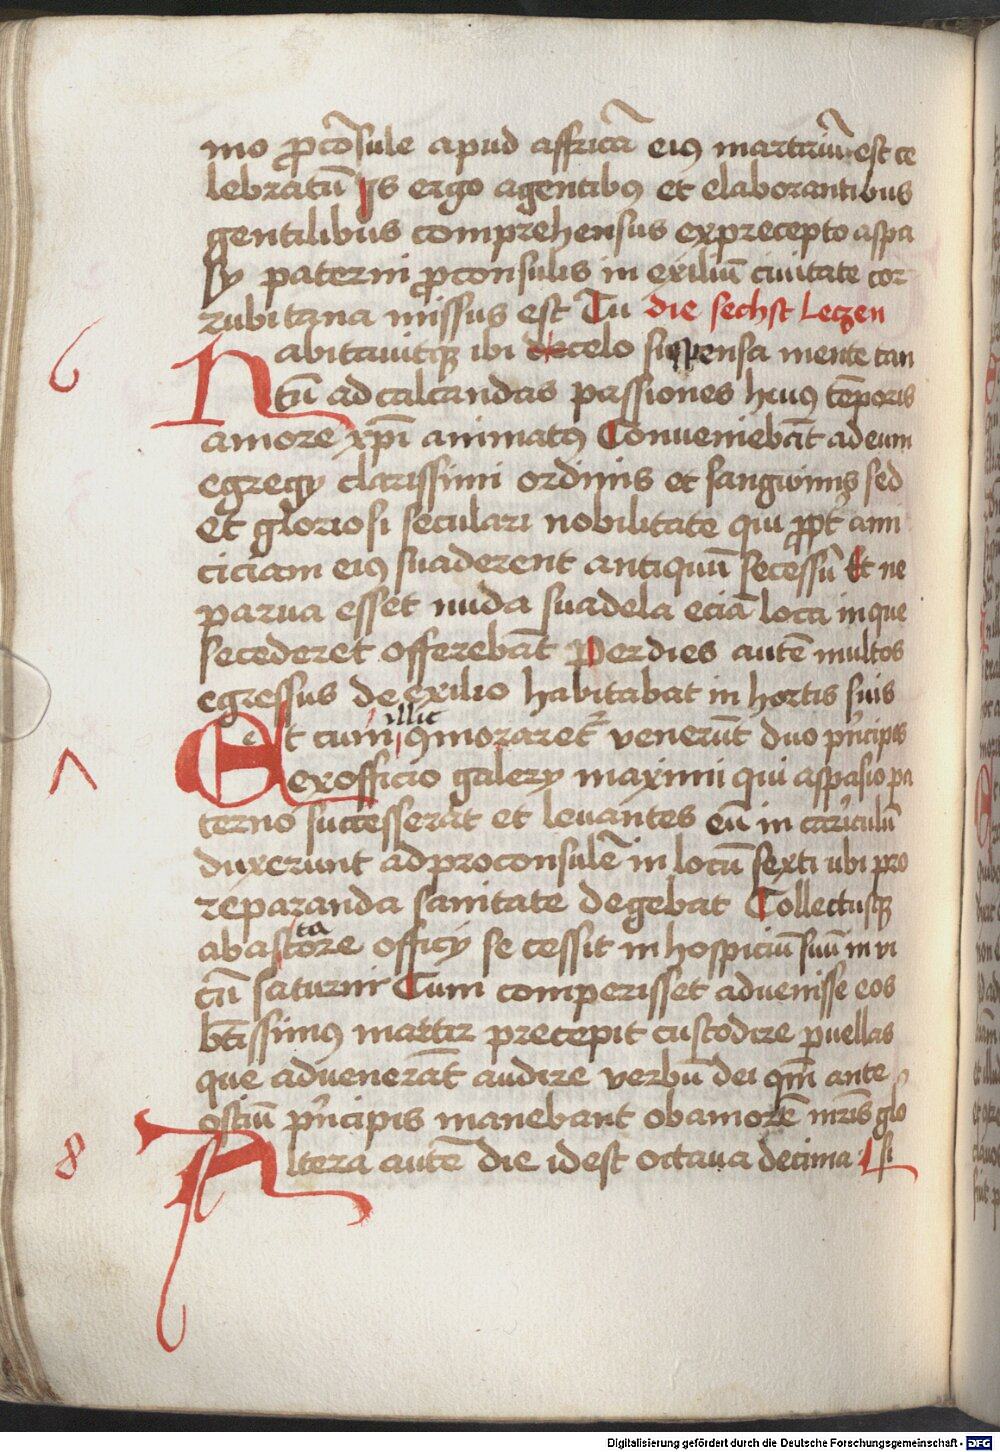 mo ꝓcōsule apud affricā eiꝰ martiriū est ce
lebratū Is ergo agentibꝰ et elaborantibus
gentilibus comprehensus ex precepto aspa
sy paterni ꝓconsulis in exiliū ciuitate cor
zubitana missus est Tu die sechst Leczen
6
Habitauitqꝫ ibi de celo suspensa mente tan
tū ad calcandas passiones huiꝰ tēporis
amore xp̄i animatꝰ Conueniebāt ad eum
egregy clarissimi ordinis et sangwinis sed
et gloriosi seculari nobilitate qui ꝓpt̄ ami
ciciam eiꝰ suaderent antiquū secessū Et ne
parua esset nuda suadela eciā loca in que
secederet offerebāt Per dies autē multos
egressus de exilio habitabat in hortis suis
illic
Et cum ꝯmoraret᷑ venerūt duo p̓ncipes
7
ex officio galery maximi qui aspasio pa
terno successerat et leuantes eū in curriculū
duxerunt ad proconsulē in locū sexti ubi pro
reparanda sanitate degebat Collectusqꝫ
ta
ab astore officy se cessit in hospiciū suū in vi
cū saturni Cum comperisset aduenisse eos
btīssimꝰ martir precepit custodire puellas
que aduenerāt audire verbū dei qm̄ ante
ostiū p̓ncipis manebant ob amorē mr̄is glo
8
Altera autē die id est octaua decima si
Digitalisierung gefördert durch die Deutsche Forschungsgemeinschaft - DFG